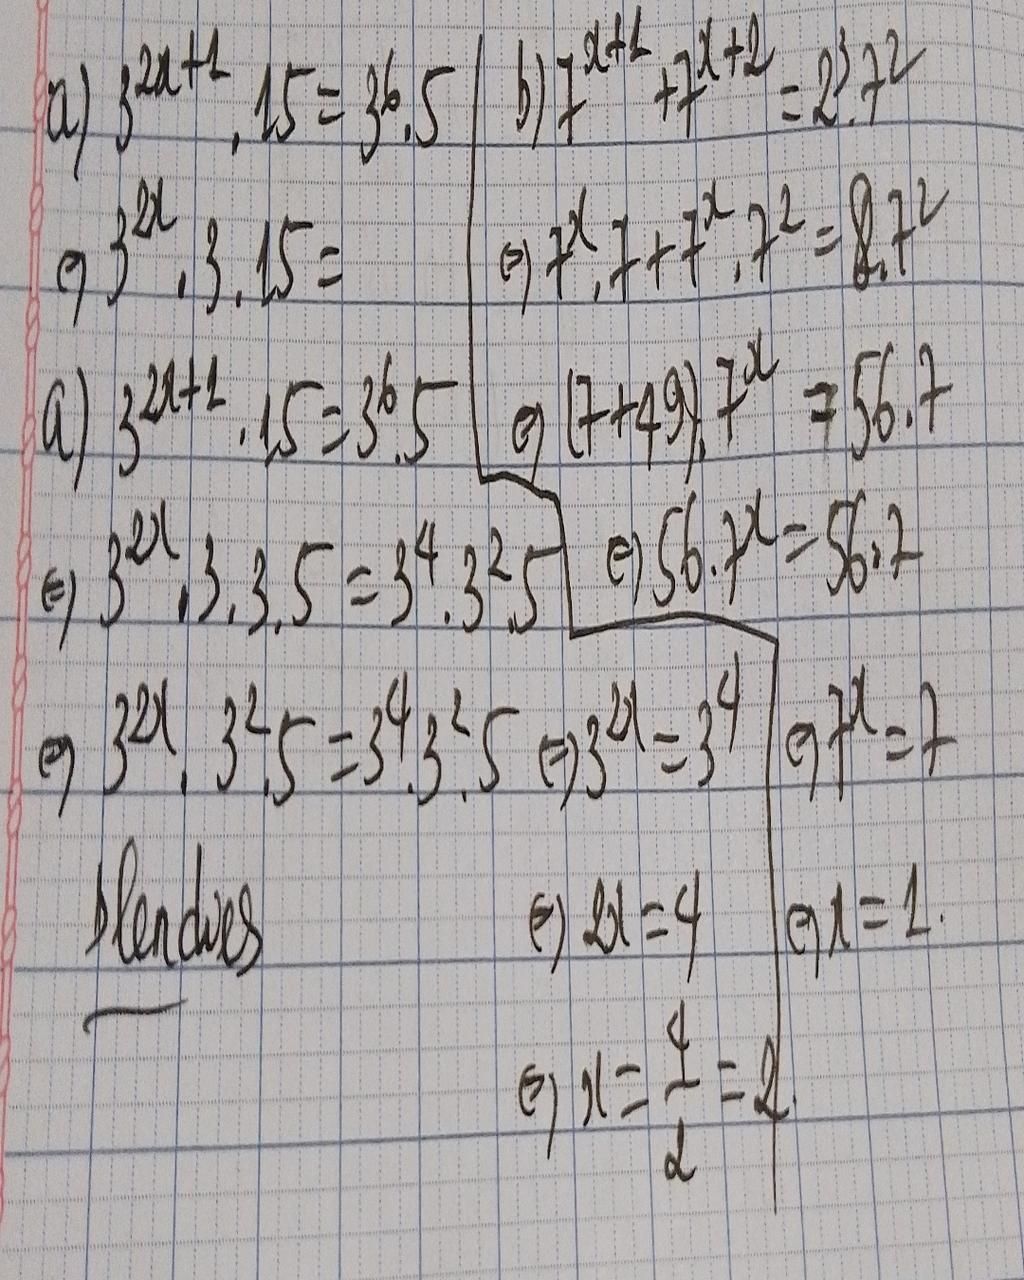 a) 3^{2x+1} . 15 = 3^6 . 5
⇔ 3^{2x} . 3 . 15 =
a) 3^{2x+1} . 15 = 3^6 . 5
⇔ 3^{2x} . 3 . 3 . 5 = 3^4 . 3^2 . 5
⇔ 3^{2x} . 3^2 . 5 = 3^4 . 3^2 . 5 ⇔ 3^{2x} = 3^4
⇔ 2x = 4
⇔ x = 4/2 = 2.
b) 7^{x+1} + 7^{x+2} = 2^3 . 7^2
⇔ 7^x . 7 + 7^x . 7^2 = 8 . 7^2
⇔ (7+49) . 7^x = 56 . 7
⇔ 56 . 7^x = 56 . 7
⇔ 7^x = 7
⇔ x = 1.